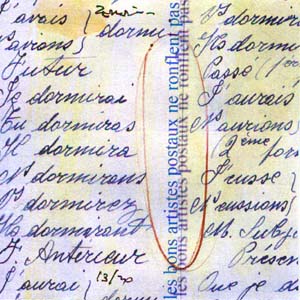 J'avais
dormi
N. avons
Futur
Je dormirai
Tu dormiras
Il dormira
Ns dormirons
Vs dormirez
Ils dormiront
F. Antérieur
J'aurai
13/20
les bons artistes postaux ne ronflent pas
les bons artistes postaux ne ronflent pas
Vs dormiri
Ils dormir
Passé (1ère
J'aurais
Ns aurions
2ème for
J'eusse
Ns eussions
M. Subj
Présen
Que je do